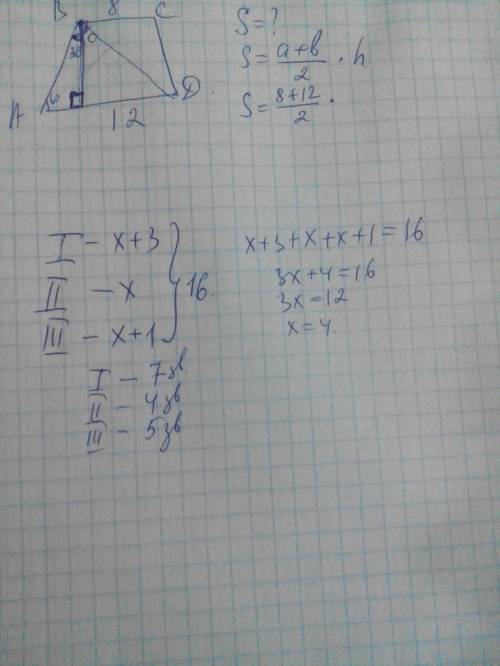 B 8 C
30
A D.
12
S=?
S= (a+b)/2 · h
S= (8+12)/2 ·
I – x+3
II – x
III – x+1
16.
x+3+x+x+1=16
3x+4=16
3x=12
x=4.
I – 7зв
II – 4зв
III – 5зв